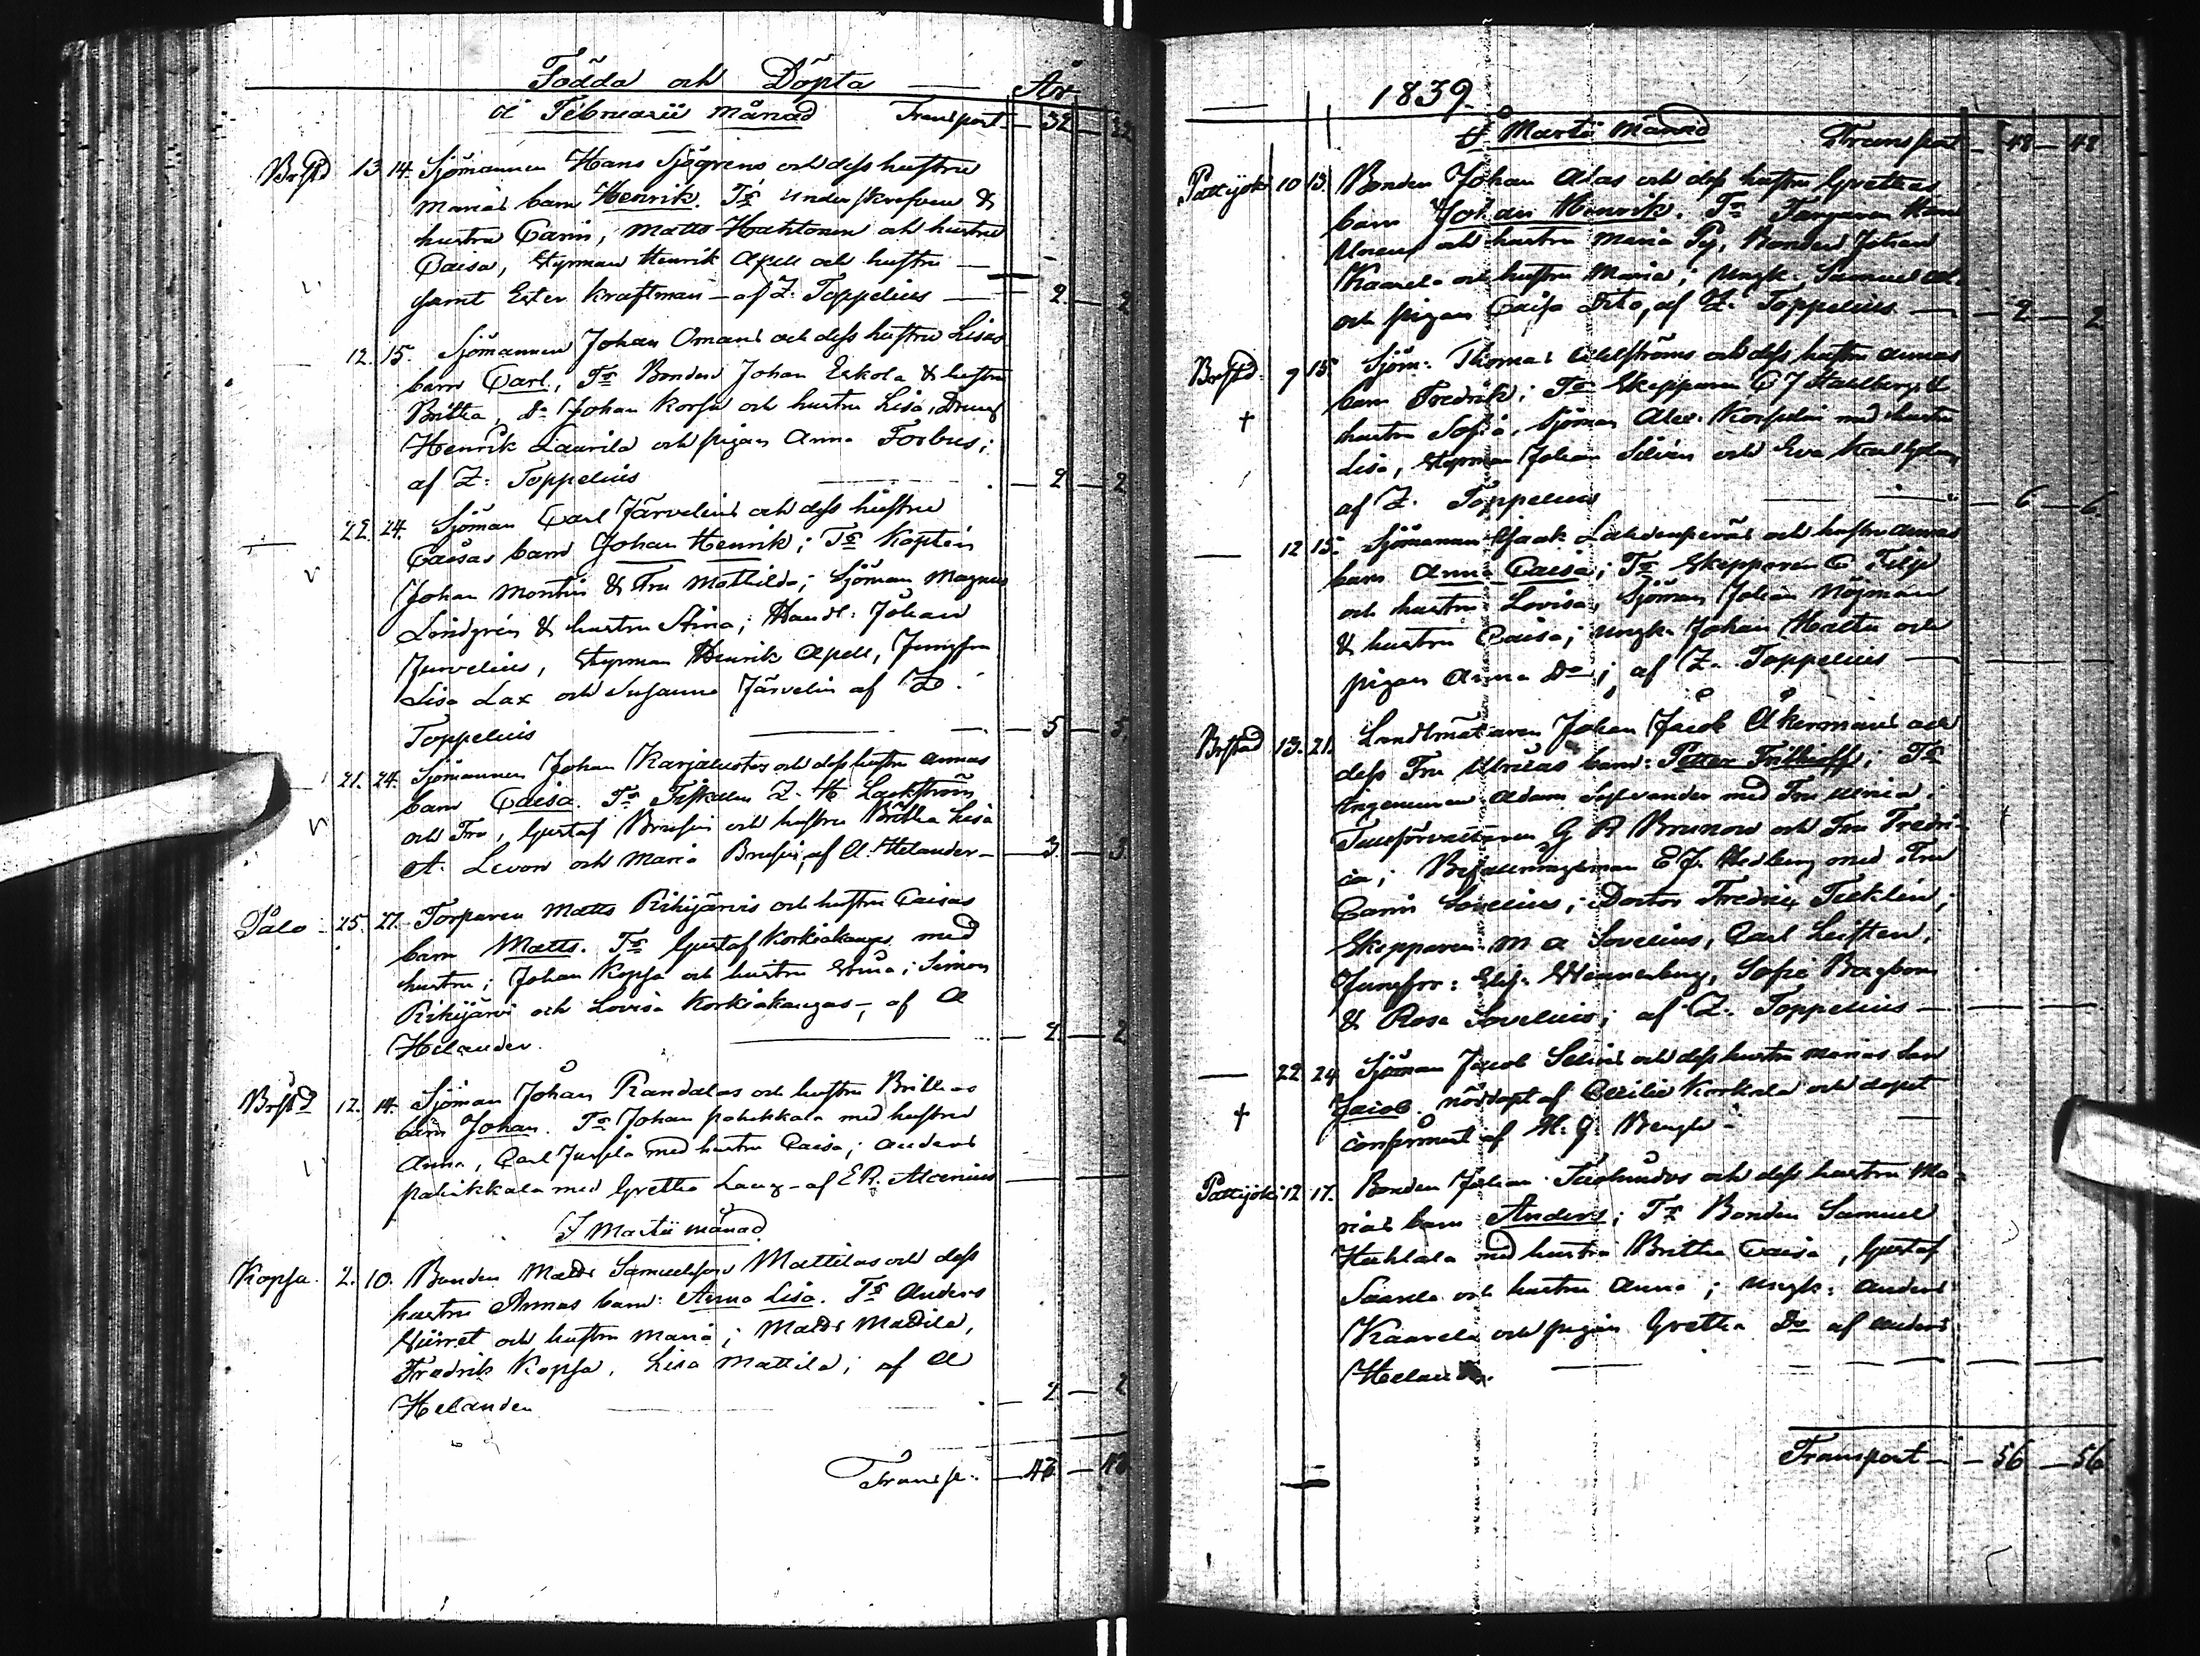 Födda och Döpta — År
i Februarii månad Transport — 32 — 32
Brstd 13. 14. Sjömannen Hans Sjögrens och dess hustru
Marias barn Henrik. T:s Underskrefven &
hustru Carin, Matts Hahtonen och hustru
Caisa, Styrman Henrik Apell och hustru —
samt Ester Kraftman — af Z. Toppelius — 2 — 2
— 12. 15. Sjömannen Johan Omans och dess hustru Lisas
barn Carl, T:s Bonden Johan Eskola & hustru
Britha, D:o Johan Korfu och hustru Lisa, Dreng
Henrik Laurila och pigan Anna Forbus;
af Z: Toppelius — 2 — 2
— 22. 24. Sjöman Carl Järvelins och dess hustru
Caisas barn Johan Henrik; T:s Kapten
Johan Montin & Fru Mathilda; Sjöman Magnus
Lindgrén & hustru Stina; Handl: Johan
Jurvelius, Styrman Henrik Apell, Jungfru
Lisa Lax och Susanna Järvelin af Z.
Toppelius — 5 — 5.
— 21. 24. Sjömannen Johan Karjaluotos och dess hustru Annas
barn Caisa. T:s Fiskalen Z. H Lackström
och Fru, Gustaf Brusin och hustru Britha Lisa
A. Levon och Maria Brusin, af A. Helander — 3. — 3.
Palo 25. 27. Torparen Matts Rihijärvis och hustru Caisas
barn Matts. T:s Gustaf Korkiakangas med
hustru; Johan Kopsa och hustru Stina; Simon
Rihijärvi och Lovisa Korkiakangas —, af A
Helander. — 2. — 2
Brstd 12. 14. Sjöman Johan Randalas och hustru Brithas
barn Johan. T:s Johan pahikkala med hustru
Anna, Carl Jussila med hustru Caisa; Anders
pahikkala med Gretha Lang — af E R. Alcenius —
I Martii månad
Kopsa. 2. 10. Bonden Matts Samuelsson Mattilas och dess
hustru Annas barn: Anna Lisa. T:s Anders
och hustru Maria; Matts Mattila,
Fredrik Kopsa, Lisa Mattila; af A
Helander — 2 — 2
Transp: — 48 — 48
1839.
I Martii månad Transport — 48 — 48
Pattijoki 10 13. Bonden Johan Alas och dess hustru Grethas
barn Johan Henrik. T:s Torparen
och hustru Maria Py, Bonden Johan
Kaarela och hustru Maria; Ungk: Samuel
och pigan Caisa Dito, af Z. Toppelius — 2 — 2
Brstd. 9 15 Sjöm: Thomas Ahlströms och dess hustru Annas
barn Fredrik; T:s Skepparen C J Stahlberg &
hustru Sofia, Sjöman Alex. Korpelin med hustru
Lisa, Styrman Johan Silvén och Eva
af Z. Toppelius — 6 — 6.
— 12 15. Sjömannen Isaak Lahdenperäs och hustru Annas
barn Anna Caisa; T:s Skepparen C Filip
och hustru Lovisa, Sjöman Johan Nöjman
& hustru Caisa; Ungk. Johan Halta och
pigan Anna D:o; af Z. Toppelius —
Brstad 13. 21. Landtmätaren Johan Jacob Åkermans och
dess Fru Ulricas barn: Petter Frithioff; T:s
Ingenieuren Adam Sylvander med Fru Maria;
Tullförvaltaren G R Brunow och Fru Fredri-
ca; Befallningsman E J. Hedberg med Fru
Carin Sovelius; Doctor Fredric Tecklén;
Skepparen M A Sovelius, Carl Leisten,
Jungfrr: Elis. Wennerberg, Sofie Bergbom
& Rosa Sovelius; af Z. Toppelius —
— 22. 24 Sjöman Jacob Selins och dess hustru Marias barn
Jacob. nöddöpt af Cecilia Korkala och dopet
confirmert af H. G. Bergh —
Pattijoki 12. 17. Bonden Johan Tuohunders och dess hustru Ma-
rias barn Anders; T:s Bonden Samuel
Huhtala med hustru Britha Caisa, Gustaf
Saarela och hustru Anna; Ungk: Anders
Kaarela och pigan Gretha D:o af Anders
Helander. —
Transport — 56 — 56